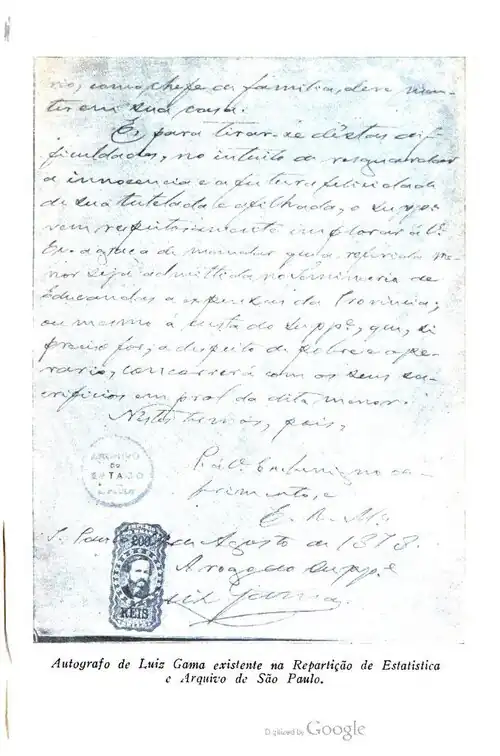 rio, como chefe da familia, deve man-
ter em sua casa.
E, para tirar-se déstas dif-
ficuldades, no intuito de resguardar
a innocencia e a futura felicidade
de sua tutelada e afilhada, o Suppe.
vem respeitosamente implorar á V.
Exa. a graça de mandar que a referida me-
nor seja admittida no Seminario de
Educandas a expensas da Provincia;
ou mesmo á custa do Suppe., que, si
preciso for, a despeito de pobre e ope-
rario, concorrerá com os seus sa-
crificios em prol da dita menor.
Néstes termos, pois,
P. á V. Exa. benigno de-
ferimento, e
E. R. Mce.
S. Paulo de Agosto de 1873.
A rogo do Suppe.
Luiz Gama.
ARCHIVO
DO
ESTADO
S. PAULO
200
REIS
Autografo de Luiz Gama existente na Repartição de Estatistica
e Arquivo de São Paulo.
Digitized by Google